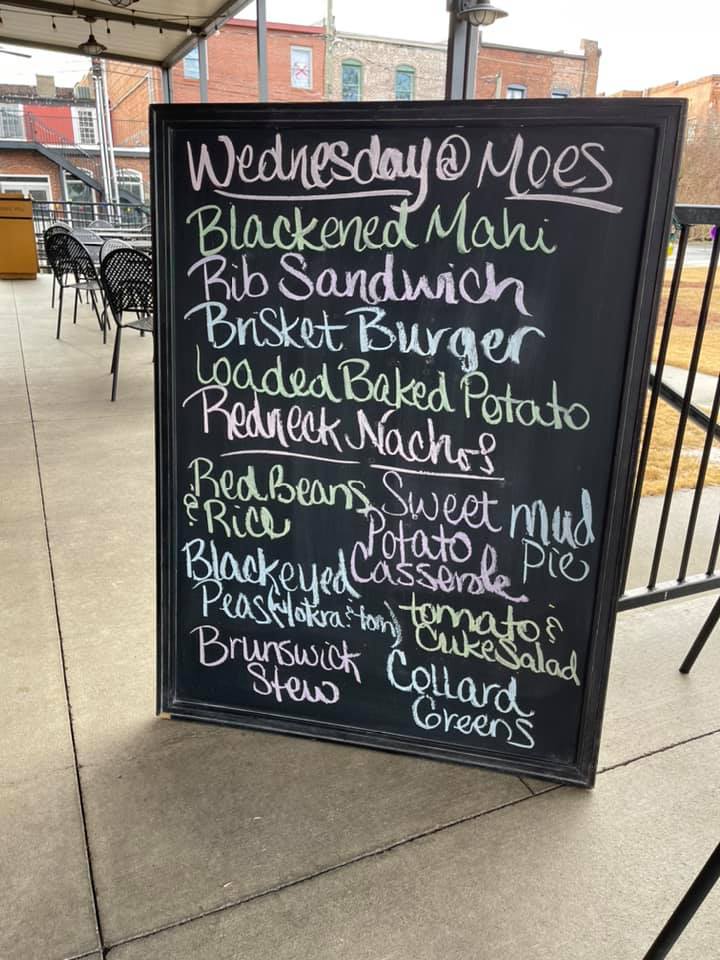 Wednesday @ Moes
Blackened Mahi
Rib Sandwich
Brisket Burger
Loaded Baked Potato
Redneck Nachos
Red Beans
& Rice
Blackeyed
Peas (w/okra & tom)
Brunswick
Stew
Sweet
Potato
Casserole
Mud
Pie
tomato &
Cuke Salad
Collard
Greens